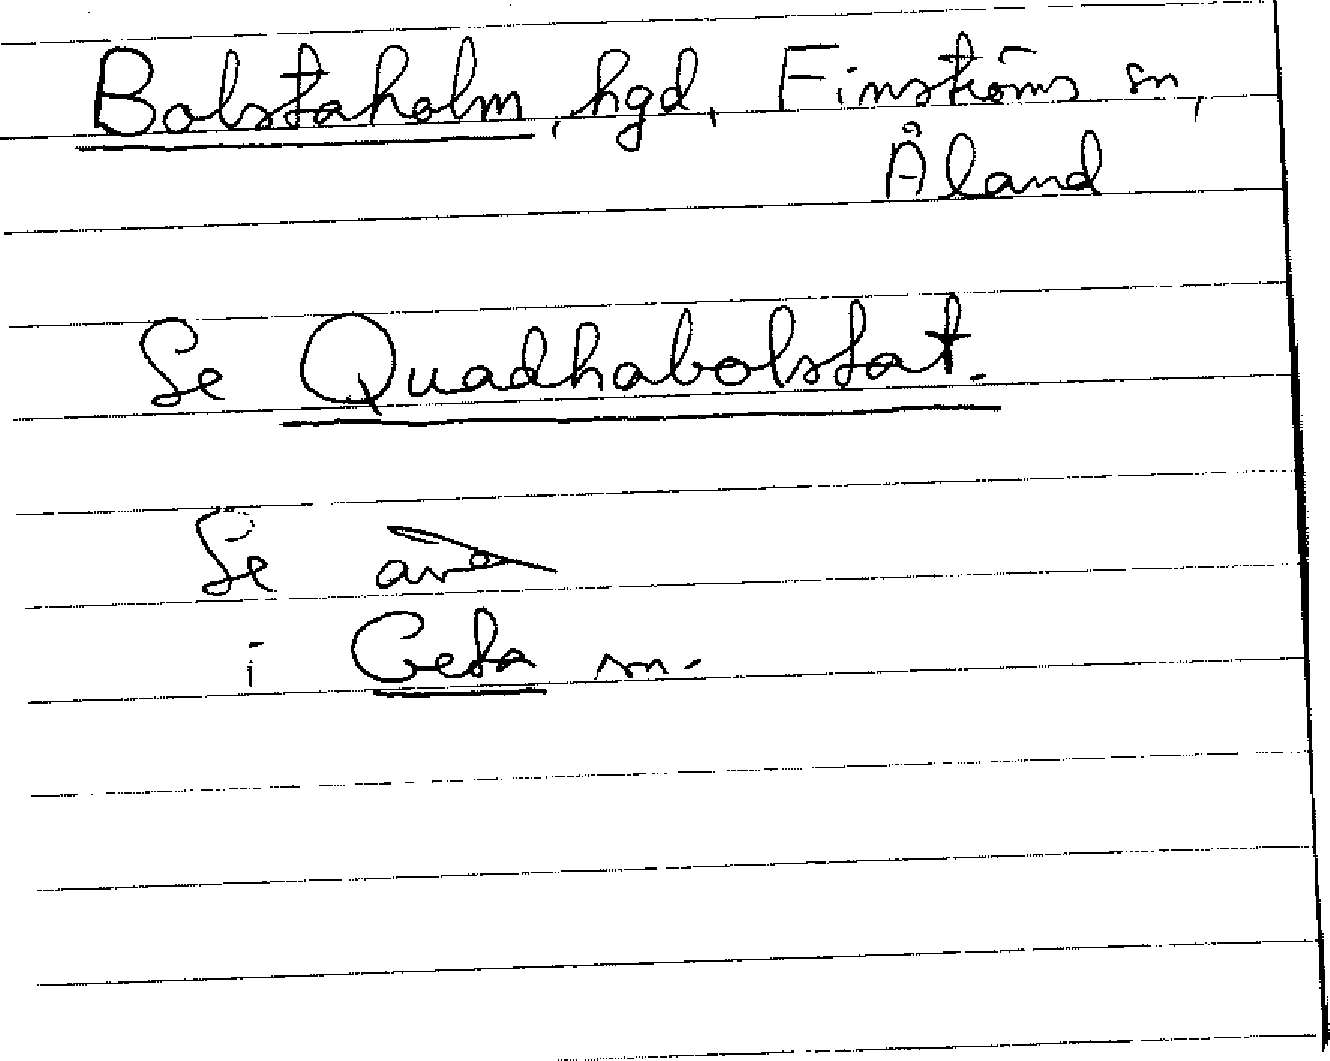 Bolstaholm, hgd, Finströms sn,
Åland
Se Quadhabolstat.
Se även
i Geta sn.